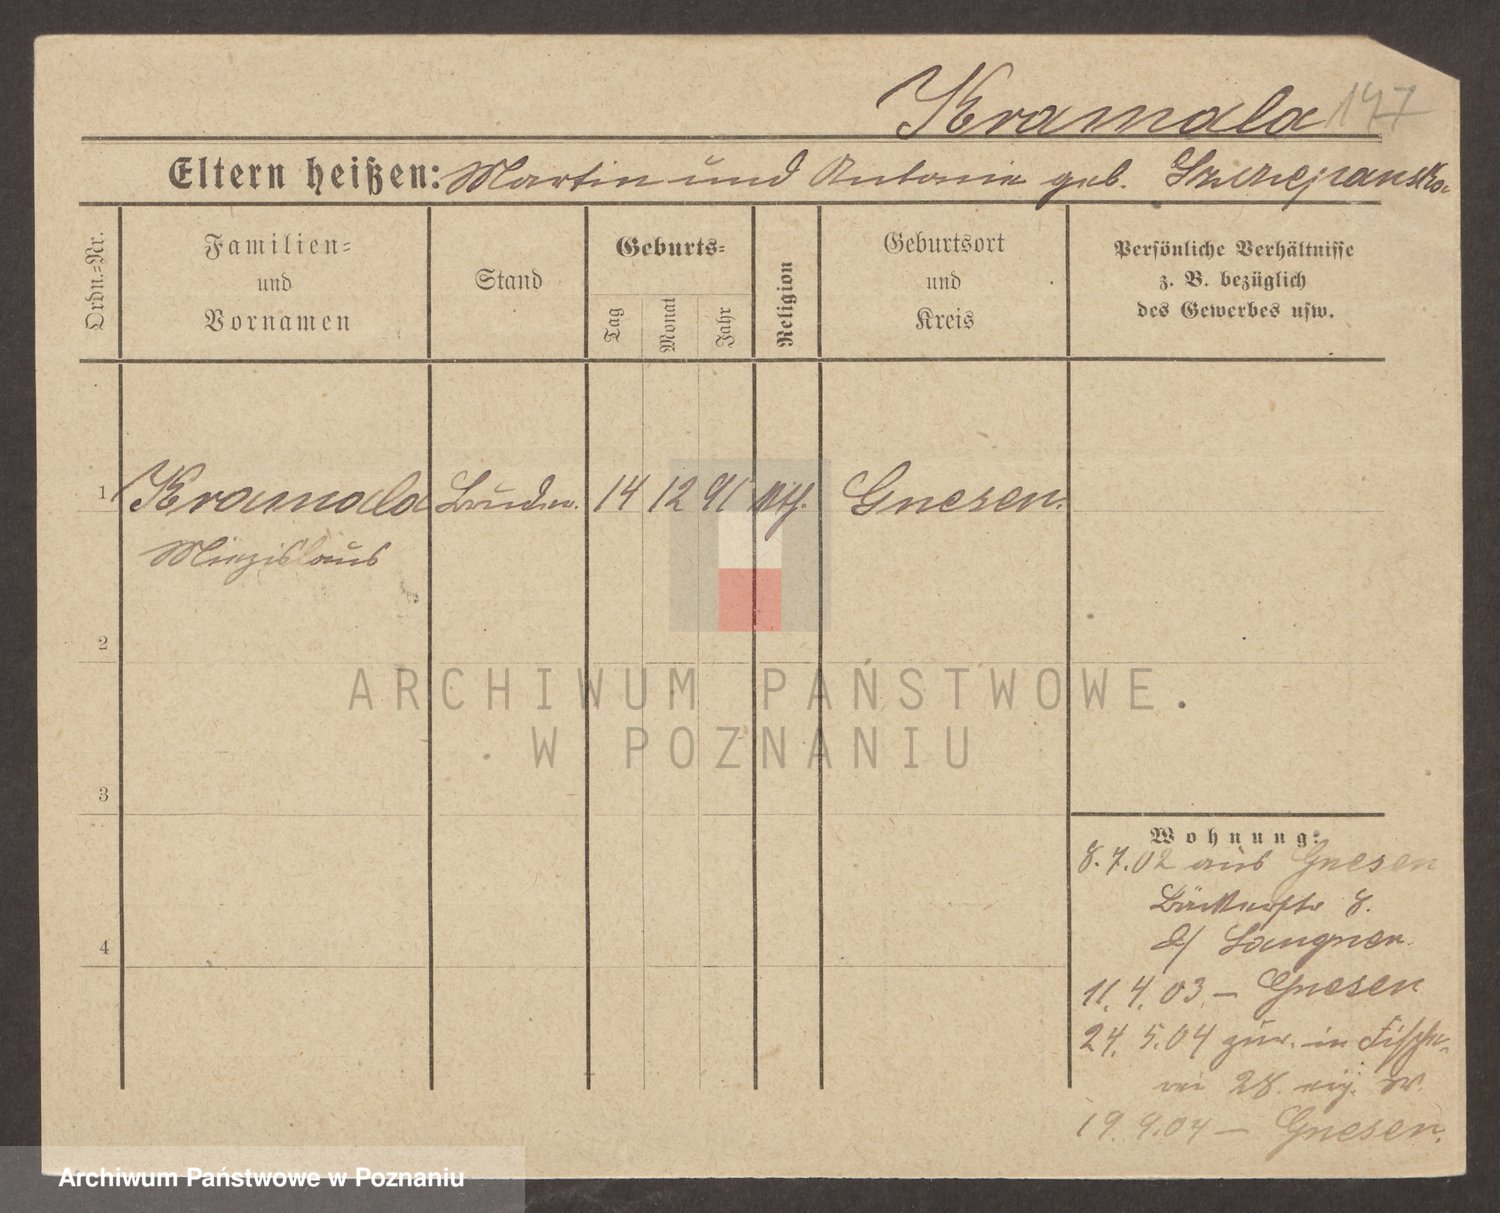 Kramala 147
Eltern heißen: Martin und Antonie geb. Szczepanska
Ordn.-Nr.
Familien-
und
Vornamen
Stand
Geburts-
Tag
Monat
Jahr
Religion
Geburtsort
und
Kreis
Persönliche Verhältnisse
z. B. bezüglich
des Gewerbes usw.
1 Kramala 14 12 91 kth. Gnesen.
Miezislaus
2
3
4
Wohnung:
8.7.02 aus Gnesen
Bäckerstr 8.
b/ Langner.
11.4.03 – Gnesen
24.5.04 zur. in Fische-
rei 28. eig. W.
19.9.04 – Gnesen.
ARCHIWUM PAŃSTWOWE
W POZNANIU
Archiwum Państwowe w Poznaniu